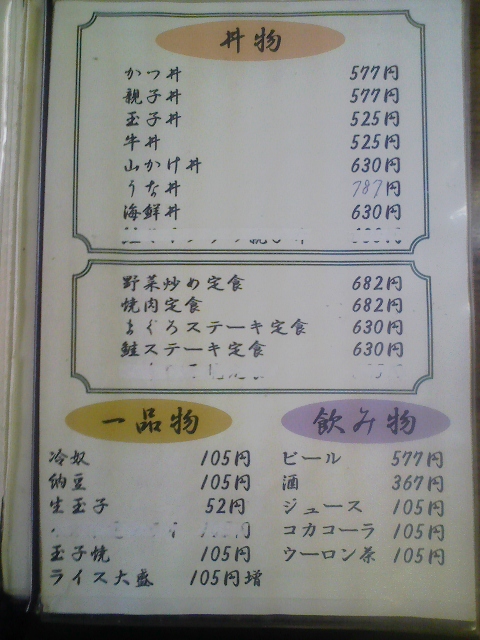 丼物
かつ丼 577円
親子丼 577円
玉子丼 525円
牛丼 525円
山かけ丼 630円
うな丼 787円
海鮮丼 630円
野菜炒め定食 682円
焼肉定食 682円
まぐろステーキ定食 630円
鮭ステーキ定食 630円
一品物
冷奴 105円
納豆 105円
生玉子 52円
玉子焼 105円
ライス大盛 105円増
飲み物
ビール 577円
酒 367円
ジュース 105円
コカコーラ 105円
ウーロン茶 105円